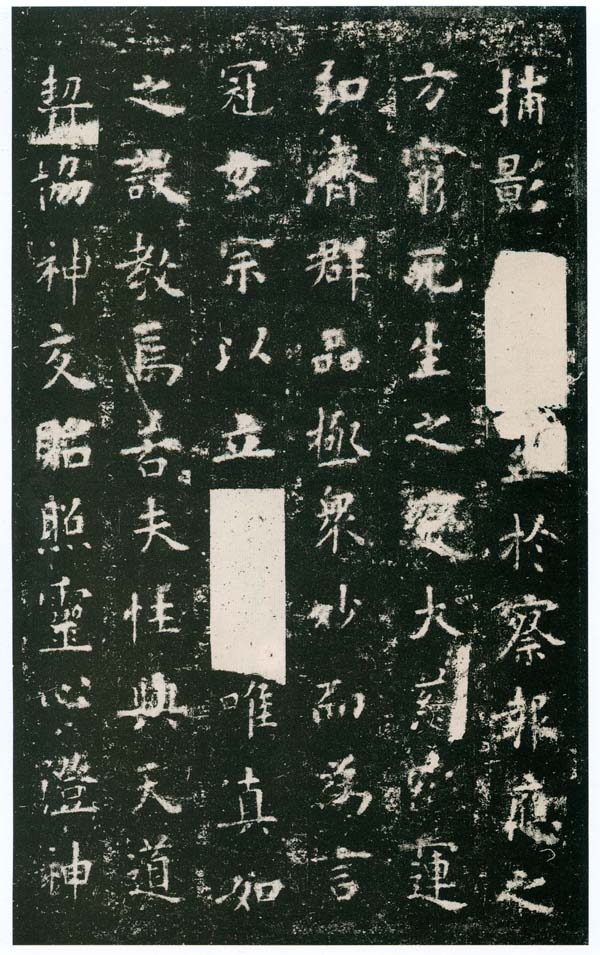 捕影至於察報應之
方窮死生之變大慈運
弘濟群品極衆妙而為言
冠玄宗以立唯真如
之設教焉若夫性與天道
契協神交照靈心澄神